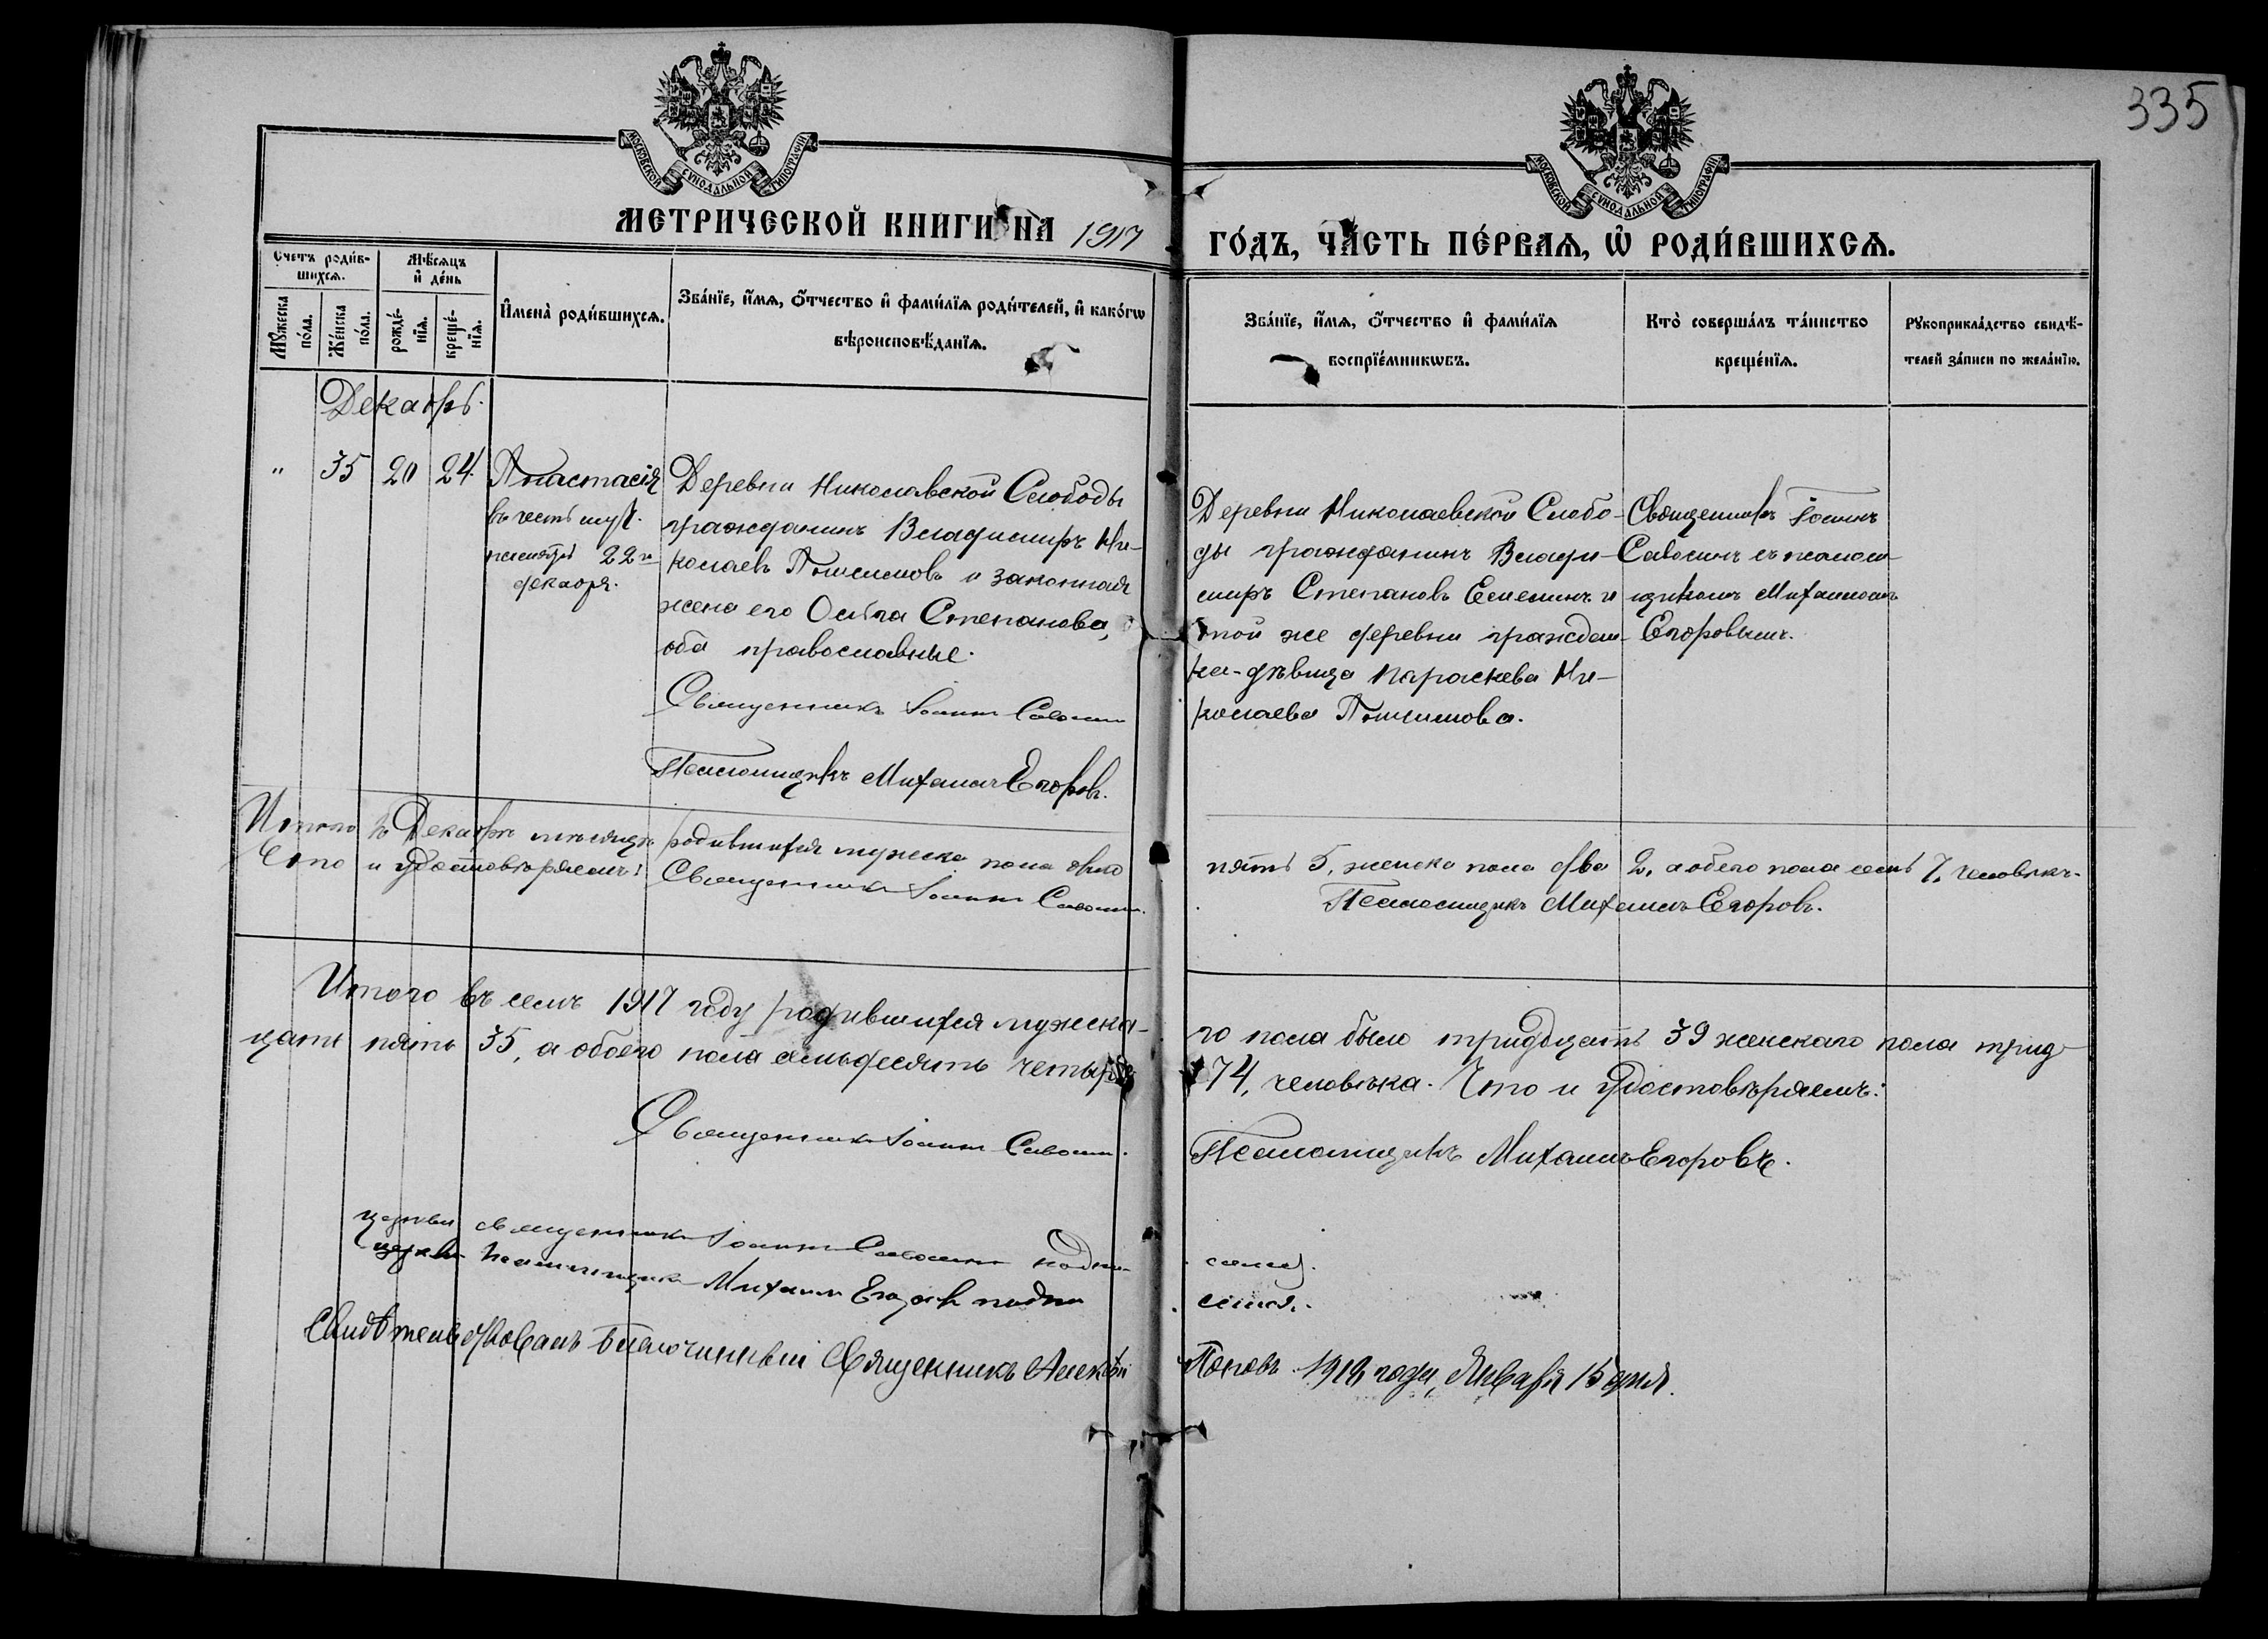 335
МОСКОВСКОЙ СѴНОДАЛЬНОЙ ТИПОГРАФІИ
МОСКОВСКОЙ СѴНОДАЛЬНОЙ ТИПОГРАФІИ
МЕТРИЧЕСКОЙ КНИГИ НА 1917
ГО́ДЪ, ЧА́СТЬ ПЕ́РВАѦ, Ѿ РОДИ́ВШИХСѦ.
Счетъ роди́в-
шихсѧ.
Мѣ́сѧцъ
и҆ де́нь
Мꙋ́жеска
по́ла.
Же́нска
по́ла.
рожде́-
нїѧ.
креще́-
нїѧ.
И҆мена̀ роди́вшихсѧ.
Зва́нїе, и҆́мѧ, ѻ҆́тчество и҆ фами́лїѧ роди́телей, и҆ како́гѡ
вѣроисповѣ́данїѧ.
Зва́нїе, и҆́мѧ, ѻ҆́тчество и҆ фами́лїѧ
воспрїе́мникѡвъ.
Кто̀ соверша́лъ та́инство
креще́нїѧ.
Рꙋкоприкла́дство свидѣ́-
телей за́писи по жела́нїю.
Декабрь.
" 35 20 24. Анастасія
въ честь муч.
22го
декабря.
Деревни Николаевской Слободы
гражданинъ Владимиръ Ни-
колаевъ и законная
жена его Ольга Степанова,
оба православные.
Священникъ Іоаннъ Савосин
Псаломщикъ Михаилъ Егоровъ.
Деревни Николаевской Слобо-
ды гражданинъ Влади-
миръ Степановъ и
той же деревни граждан-
ка-дѣвица Параскева Ни-
колаева
Священникъ Іоаннъ
Савосинъ съ псалом-
щикомъ Михаиломъ
Егоровымъ.
Итого въ Декабрѣ мѣсяцѣ родившихся мужеска пола было
пять 5, женска пола два 2, а обоего пола семь 7, человѣкъ.
Что и удостовѣряемъ: Священникъ Іоаннъ Савосин.
Псаломщикъ Михаилъ Егоровъ.
Итого въ семъ 1917 году родившихся мужеска-
го пола было тридцать 39 женскаго пола трид-
цать пять 35, а обоего пола семьдесять четыре
74, человѣка. Что и удостовѣряемъ:
Священникъ Іоаннъ Савосин.
Псаломщикъ Михаилъ Егоровъ.
церкви священникъ Іоаннъ Савосинъ подпи-
салъ.
церкви псаломщикъ Михаилъ Егоровъ подпи
сался.
Свидѣтельствовалъ Благочинный Священникъ Алексѣй
Поповъ. 1918 года, Января 15 дня.